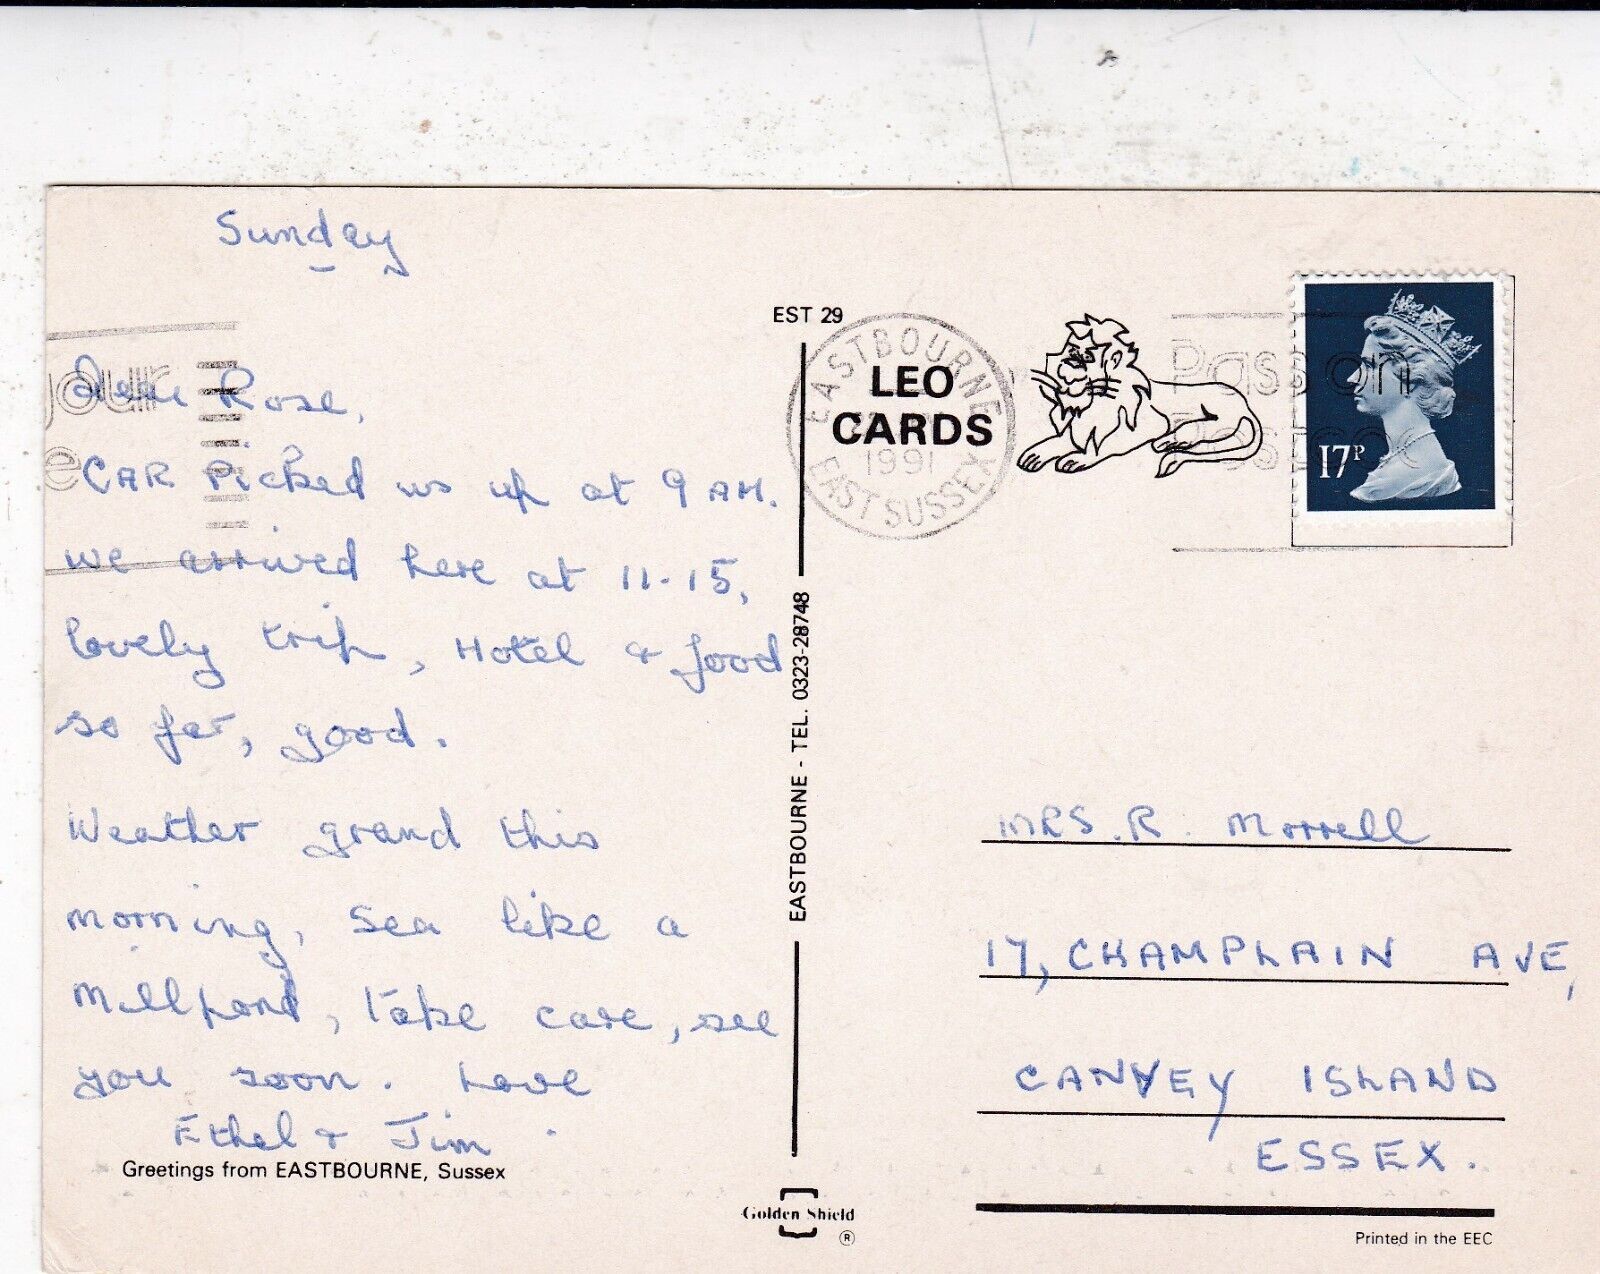 Sunday
Dear Rose,
CAR Picked us up at 9 AM.
we arrived here at 11-15,
lovely trip, Hotel & food
so far, good.
Weather grand this
morning, Sea like a
Millpond, take care, see
you soon. Love
Ethel & Jim.
Greetings from EASTBOURNE, Sussex
EST 29
LEO
CARDS
EASTBOURNE - TEL. 0323-28748
EASTBOURNE
1991
EAST SUSSEX
Pass on
Postcode
your
17P
MRS. R. Morrell
17, CHAMPLAIN AVE,
CANVEY ISLAND
ESSEX.
Golden Shield
®
Printed in the EEC